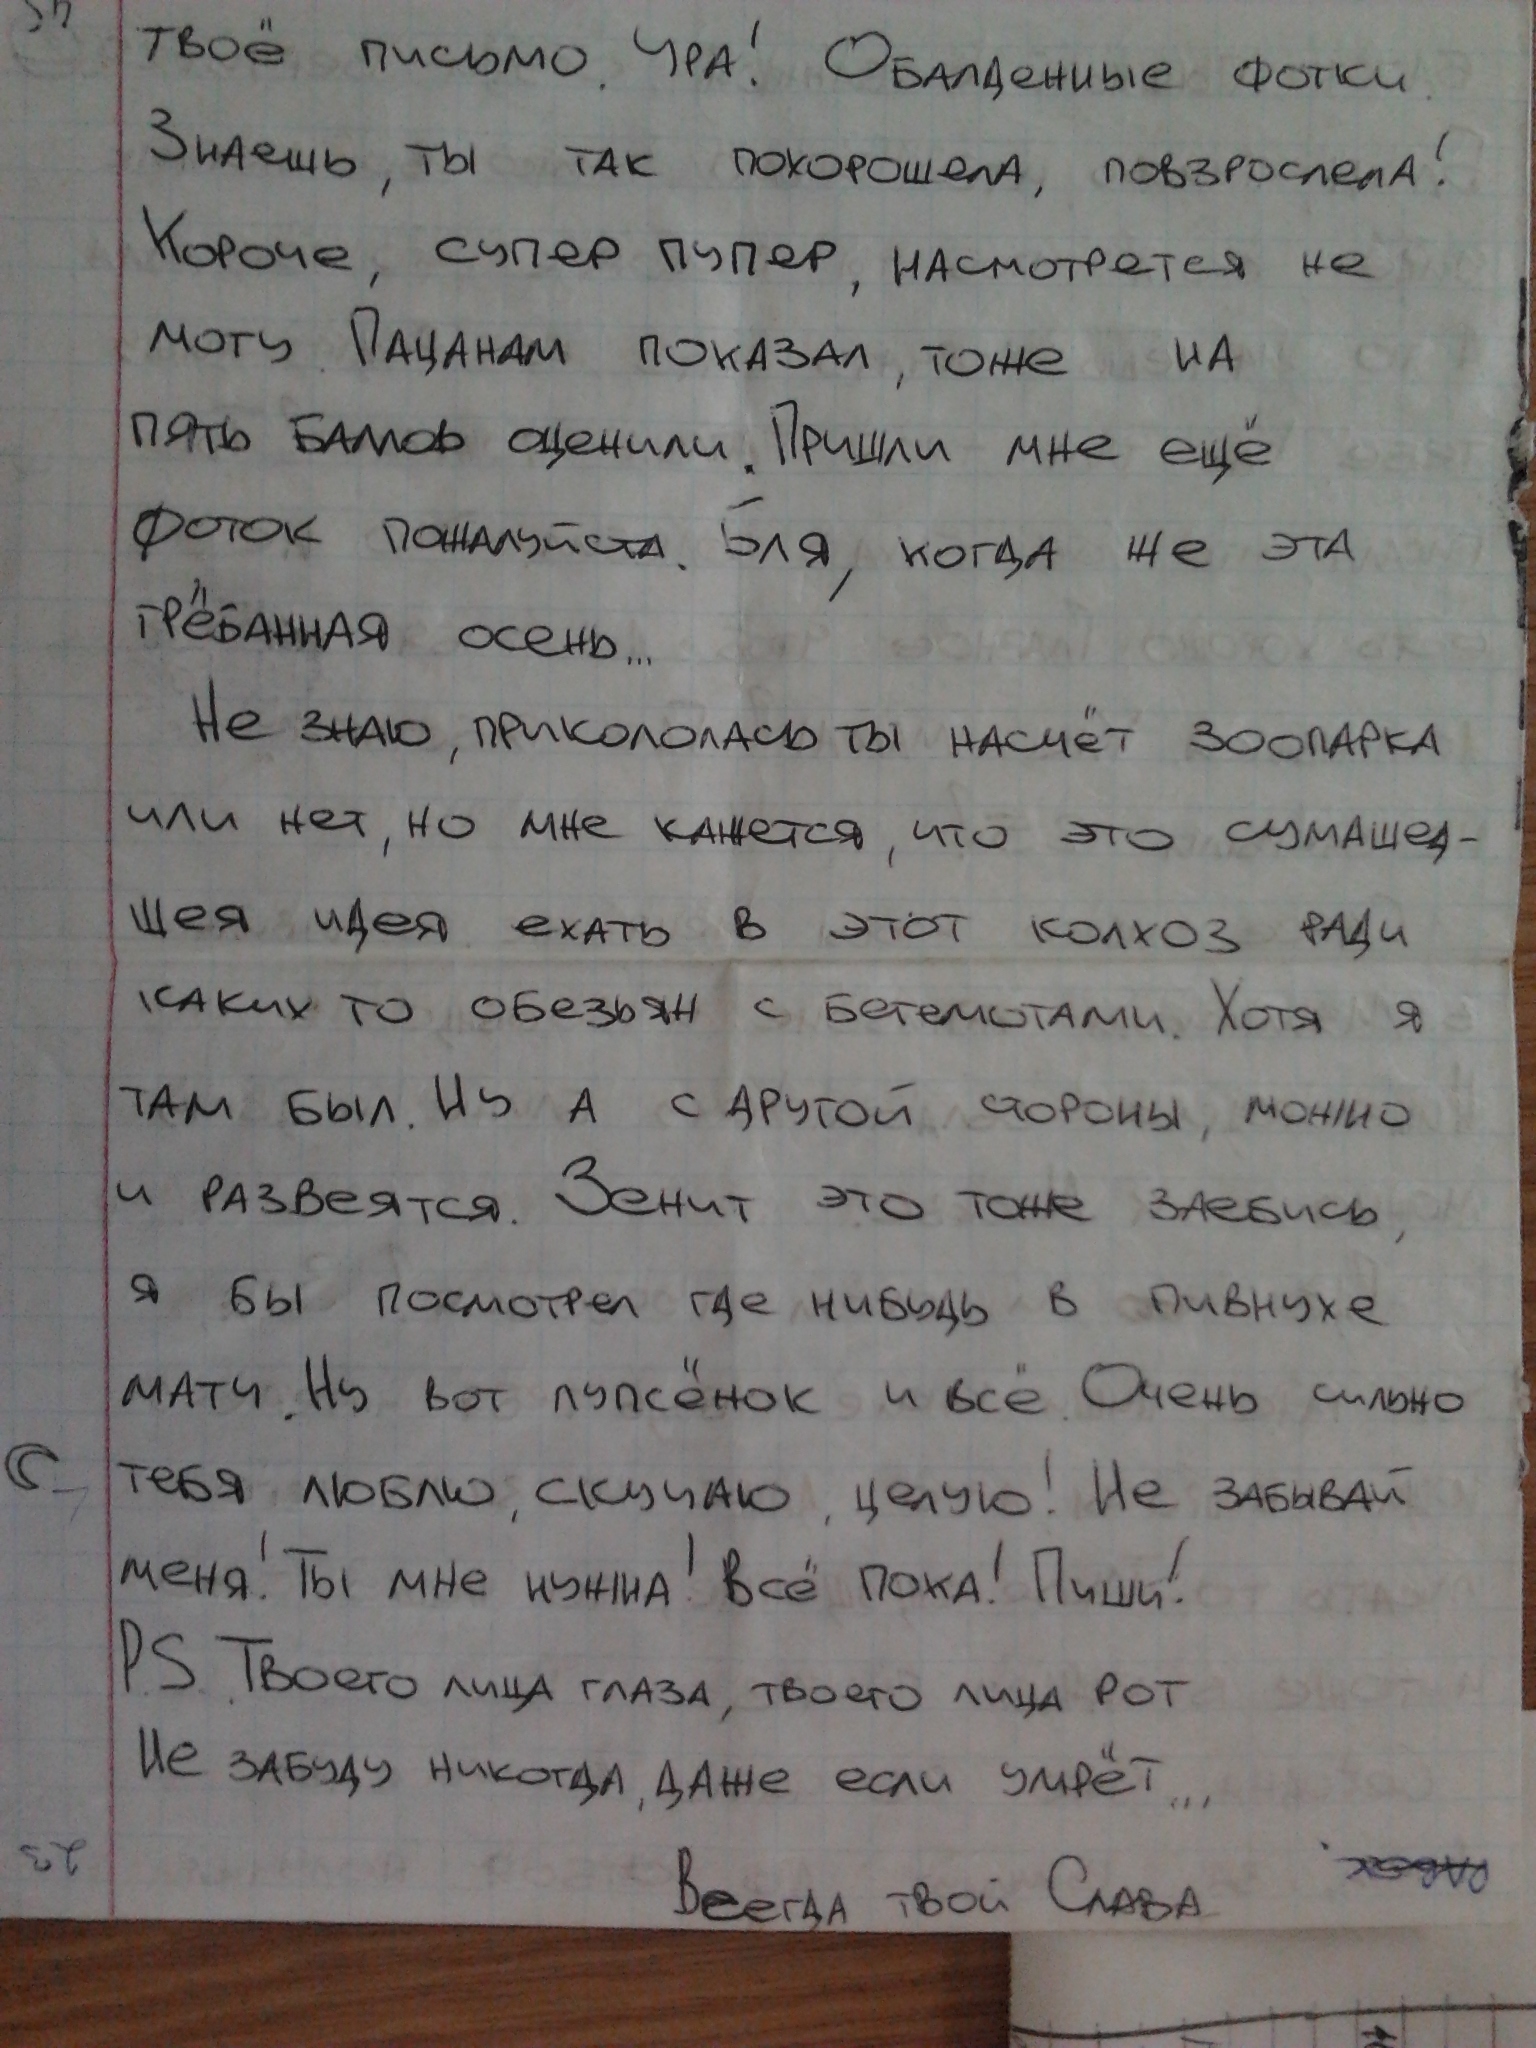 твоё письмо. Ура! Обалденные фотки.
Знаешь, ты так похорошела, повзрослела!
Короче, супер пупер, насмотрется не
могу. Пацанам показал, тоже на
пять балов оценили. Пришли мне ещё
фоток пожалуйста. Бля, когда же эта
грёбанная осень...
Не знаю, прикололась ты насчёт зоопарка
или нет, но мне кажется, что это сумашед-
шея идея ехать в этот колхоз ради
каких то обезьян с бегемотами. Хотя я
там был. Ну а с другой стороны, можно
и развеятся. Зенит это тоже заебись,
я бы посмотрел где нибудь в пивнухе
матч. Ну вот пупсёнок и всё. Очень сильно
тебя люблю, скучаю, целую! Не забывай
меня! Ты мне нужна! Всё пока! Пиши!
P.S. Твоего лица глаза, твоего лица рот
Не забуду никогда, даже если умрёт...
Всегда твой Слава